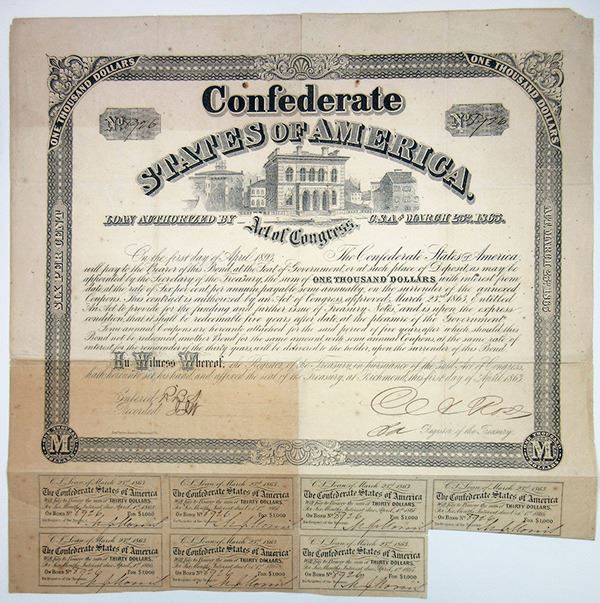 ONE THOUSAND DOLLARS
ONE THOUSAND DOLLARS
No. 5926
No. 5926
Confederate
STATES OF AMERICA.
LOAN AUTHORIZED BY
Act of Congress,
C.S.A. of MARCH 23RD, 1863.
SIX PER CENT
ACT MARCH 23RD 1863
On the first day of April 1893, The Confederate States of America
will pay to the Bearer of this Bond, at the Seat of Government, or at such place of Deposit, as may be
appointed by the Secretary of the Treasury, the sum of ONE THOUSAND DOLLARS, with interest from
date, at the rate of Six per cent, per annum, payable semi annually, on the surrender of the annexed
Coupons. This contract is authorized by an Act of Congress, approved March 23rd 1863, Entitled
An Act to provide for the funding and further issue of Treasury Notes, and is upon the express
condition, that it shall be redeemable five years after date, at the pleasure of the Government.
Semi annual Coupons are hereunto attached for the said period of five years after which, should this
Bond not be redeemed, another Bond for the same amount with semi annual Coupons, at the same rate of
interest for the remainder of the thirty years, will be delivered to the holder, upon the surrender of this Bond.
In Witness Whereof, the Register of the Treasury, in pursuance of the said Act of Congress,
hath hereunto set his hand, and affixed the seal of the Treasury, at Richmond, this first day of April 1863.
Entered
Recorded
Register of the Treasury.
M
M
C.S. Loan of March 23rd 1863.
The Confederate States of America
Will pay to Bearer the sum of THIRTY DOLLARS,
for Six Months Interest due
On Bond No. 5926 For $1,000
C.S. Loan of March 23rd 1863.
The Confederate States of America
Will pay to Bearer the sum of THIRTY DOLLARS,
for Six Months Interest due
On Bond No. 5926 For $1,000
C.S. Loan of March 23rd 1863.
The Confederate States of America
Will pay to Bearer the sum of THIRTY DOLLARS,
for Six Months Interest due
On Bond No. 5926 For $1,000
C.S. Loan of March 23rd 1863.
The Confederate States of America
Will pay to Bearer the sum of THIRTY DOLLARS,
for Six Months Interest due
On Bond No. 5926 For $1,000
C.S. Loan of March 23rd 1863.
The Confederate States of America
Will pay to Bearer the sum of THIRTY DOLLARS,
for Six Months Interest due
On Bond No. 5926 For $1,000
C.S. Loan of March 23rd 1863.
The Confederate States of America
Will pay to Bearer the sum of THIRTY DOLLARS,
for Six Months Interest due
On Bond No. 5926 For $1,000
C.S. Loan of March 23rd 1863.
The Confederate States of America
Will pay to Bearer the sum of THIRTY DOLLARS,
for Six Months Interest due
On Bond No. 5926 For $1,000